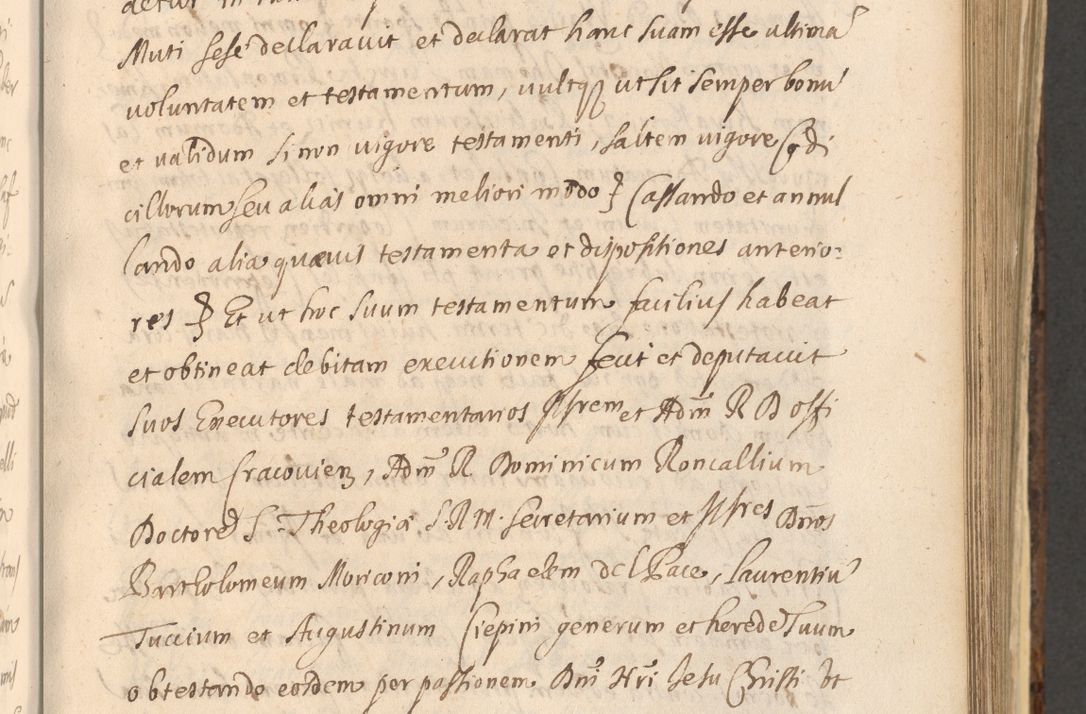 Muti sese declaravit et declarat hanc suam esse ultimã
voluntatem et testamentum, vultq₃ ut sit semper bonũ
et validum si non vigore testamenti, saltem vigore Codi
cillorum seu aliàs omni meliori modo Cassando et annul
lando alia quævis testamenta et dispositiones anterio:
res Et ut hoc suum testamentum facilius habeat
et obtineat debitam executionem fecit et deputavit
suos Executores testamentarios et Adm̃ R D offi
cialem Cracovien, Adm̃ R. Dominicum Roncallium
Doctorẽ S. Theologiæ S. R. M. Secretarium et Dños
Bartholomeum Moriconi, Raphaelem del Pace, Laurentiũ
Tuccium et Augustinum Ciepini generum et heredẽ suum
obtestando eosdem per passionem Dñi Nrĩ Jesu Christi ut